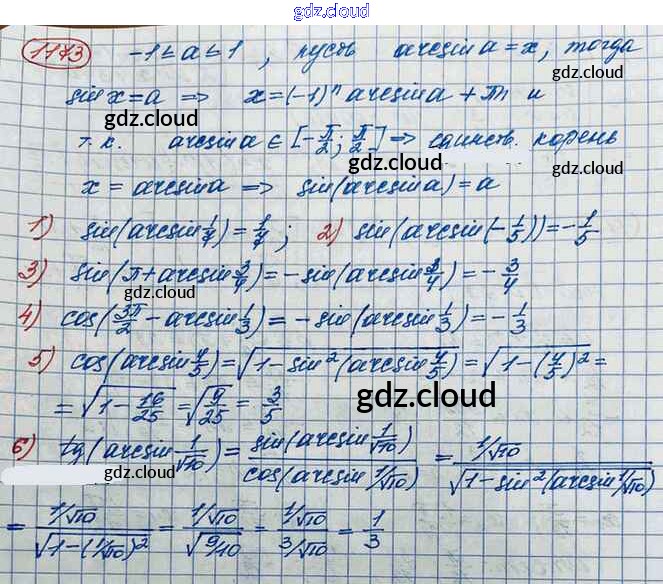 gdz.cloud
1173 -1 ≤ a ≤ 1, пусть arcsin a = x, тогда
gdz.cloud
gdz.cloud
sin x = a => x = (-1)ⁿ arcsin a + πn и
gdz.cloud
т.к. arcsin a ∈ [-π/2; π/2] => единств. корень
gdz.cloud
gdz.cloud
x = arcsin a => sin(arcsin a) = a
gdz.cloud
1) sin(arcsin 1/4) = 1/4; 2) sin(arcsin(-1/5)) = -1/5
gdz.cloud
3) sin(π + arcsin 3/4) = -sin(arcsin 3/4) = -3/4
gdz.cloud
4) cos(3π/2 - arcsin 1/3) = -sin(arcsin 1/3) = -1/3
gdz.cloud
5) cos(arcsin 4/5) = √(1 - sin²(arcsin 4/5)) = √(1 - (4/5)²) =
= √(1 - 16/25) = √(9/25) = 3/5
gdz.cloud
gdz.cloud
6) tg(arcsin 1/√10) = sin(arcsin 1/√10) / cos(arcsin 1/√10) = 1/√10 / √(1 - sin²(arcsin 1/√10))
gdz.cloud
gdz.cloud
= 1/√10 / √(1 - (1/√10)²) = 1/√10 / √(9/10) = 1/√10 / 3/√10 = 1/3
gdz.cloud
gdz.cloud